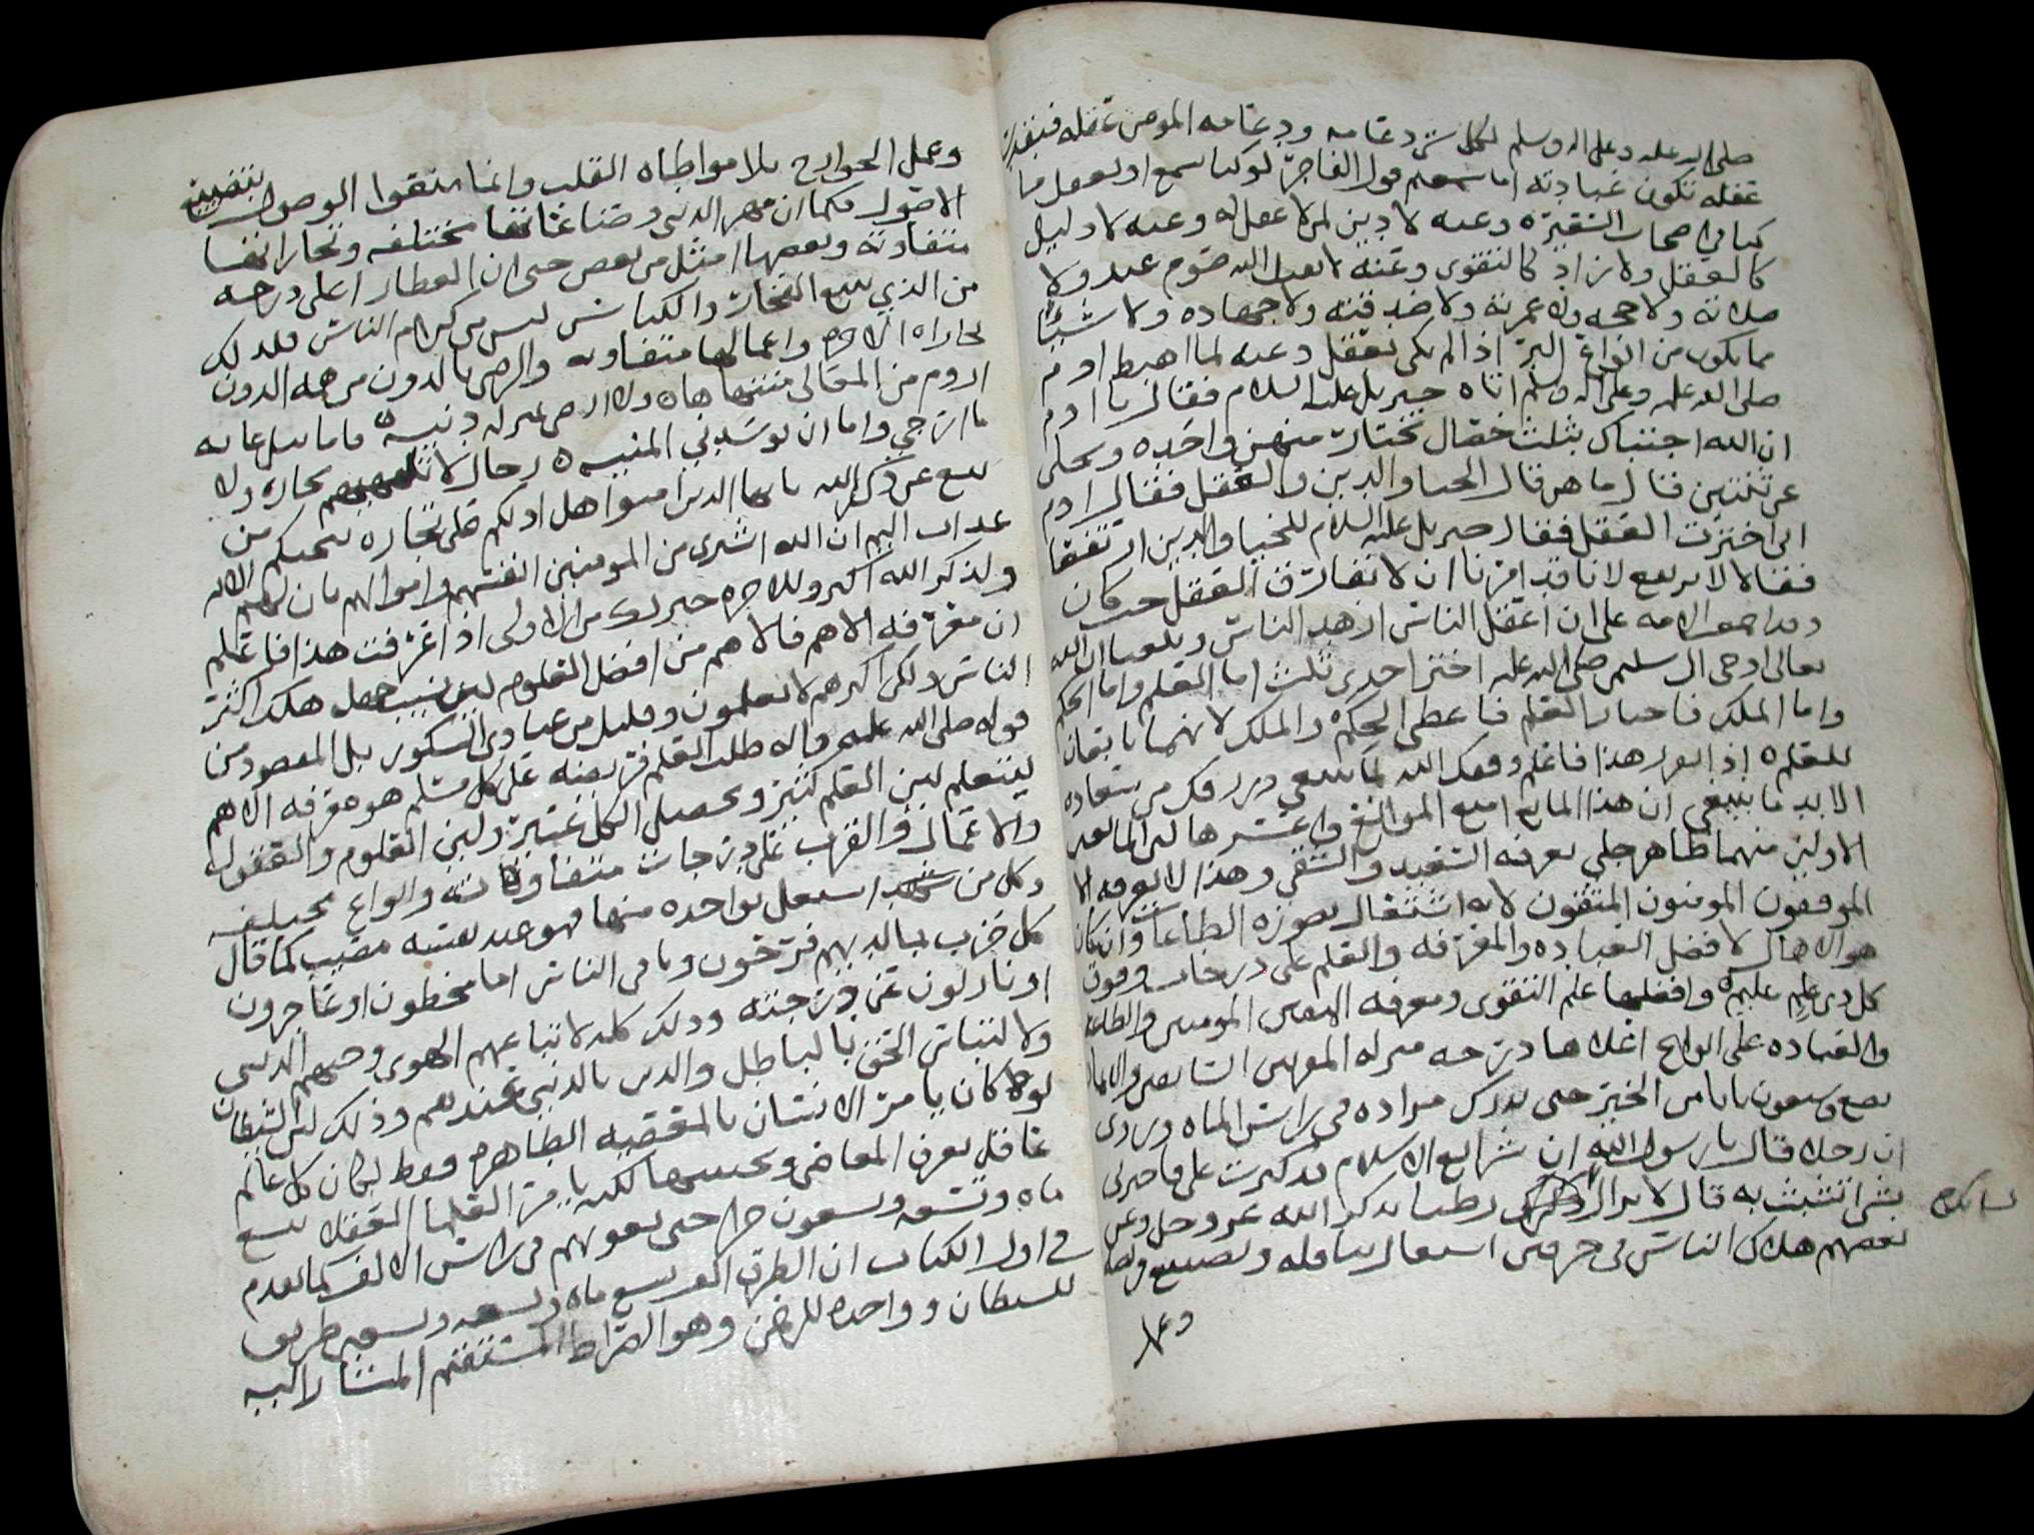 صلى الله عليه وعلى اله وسلم لكل شي دعامه ودعامه المومن عقله فبقدر
عقله تكون عبادته اما سمعتم قول الفاجر لو كنا نسمع او نعقل ما
كنا في اصحاب السعيره وعنه لا دين لمن لا عقل له وعنه لا دليل
كالعقل ولا زاد كالتقوى وعنه لا يقبل الله صوم عبد ولا
صلاته ولا حجه ولا عمرته ولا صدقته ولا جهاده ولا شيئا
مما يكون من انواع البر اذا لم يكن يعقل وعنه لما اهبط ادم
صلى الله عليه وعلى اله وسلم اتاه جبريل عليه السلام فقال يا ادم
ان الله اجتباك بثلث خصال تختار منهن واحده وتخلى
عن ثنتين قال ما هن قال الحيا والدين والعقل فقال ادم
اني اخترت العقل فقال جبريل عليه السلام للحيا والدين ارتفعا
فقالا لا نرتفع لانا قد امرنا ان لا نفارق العقل حيث كان
وقد اجمعت الامه على ان اعقل الناس ازهد الناس وبلغنا ان الله
تعالى اوحى الى سليمن صلى الله عليه اختر احدى ثلث اما العلم واما الحكم
واما الملك فاختار العلم فاعطى الحكم والملك لانهما تابعان
للعلم اذا تقرر هذا فاعلم وفقك الله لما ينبغي ورزقك من سعاده
الابد ما تبتغي ان هذا المانع امنع الموانع واعسرها لان المانعين
الاولين منهما ظاهر جلي يعرفه السعيد والشقي وهذا لا يعرفه الا
الموفقون المومنون المتقون لانه اشتغال بصوره الطاعات وان كان
هو الاهلاك لافضل العباده والمعرفه والعلم على درجات وفوق
كل ذي علم عليم وافضلها علم التقوى ومعرفه المومنين والطاعه
والعباده على انواع اعلاها درجه منزله المقربين السابقين والايمان
بضع وسبعون بابا من الخير حتى يدرك مراده في راس الماه وروي
ان رجلا قال يا رسول الله ان شرايع الاسلام قد كثرت علي فاخبرني
بشي اتشبث به قال لا يزال لسانك رطبا بذكر الله عز وجل وعن
بعضهم هلاك الناس في حرفين اشتعال بنافله وتضييع فريضه
وعمل
وعمل الجوارح بلا مواطاه القلب وانما منعوا الوصول بتضييع
الاصول فكما ان مهن الدنيا وصناعاتها مختلفه وتجاراتها
متفاوته وبعضها امثل من بعض حتى ان العطار اعلى درجه
من الذي يبيع الفخار والكناس ليس من كرام الناس فلذلك
تجاراه الاخره واعمالها متفاوته والرضى بالدون من همه الدون
اروم من المعالي منتهاها ولا ارضى بمنزله دنيه فاما نيل غايه
ما ارتجي واما ان توسدني المنيه رجال لا تلهيهم تجاره ولا
بيع عن ذكر الله يا ايها الذين امنوا هل ادلكم على تجاره تنجيكم من
عذاب اليم ان الله اشترى من المومنين انفسهم واموالهم بان لهم الايه
ولذكر الله اكبر وللاخره خير لك من الاولى اذا عرفت هذا فاعلم
ان معرفه الاهم فالاهم من افضل العلوم لمن بسبب جهل هلك اكثر
الناس ولكن اكثرهم لا يعلمون وقليل من عبادي الشكور بل المقصود من
قوله صلى الله عليه واله طلب العلم فريضه على كل مسلم هو معرفه الاهم
ليتعلم لمن العلم كثير وتحصيل الكل عسير ولمن العلوم والعقول
والاعمال والقرب على درجات متفاوتات وانواع مختلفه
وكل من اشتغل بواحده منها فهو عند نفسه مصيب كما قال
كل حزب بما لديهم فرحون وباقي الناس اما مخطون او عاجزون
او نازلون عن درجته وذلك كله لاتباعهم الهوى وحبهم الدنيا
ولالتباس الحق بالباطل والدين بالدنيا عندهم وذلك لمن الشيطان
لو كان يامر الانسان بالمعصيه الظاهره فقط لكان كل عالم
عاقل يعرف المعاصي ويجتنبها لكنه يامر العلما العقلا بتسع
ماه وتسعه وتسعون خيرا حتى يغويهم في راس الالف كما تقدم
في اول الكتاب ان الطرق الف تسع ماه وتسعه وتسعين طريق
للشيطان وواحده للرحمن وهو الصراط المستقيم المشار اليه